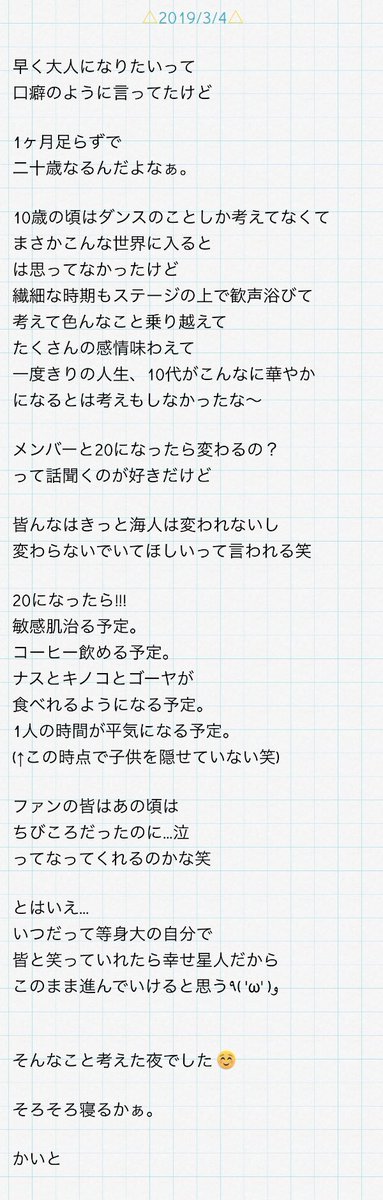 △2019/3/4△
早く大人になりたいって
口癖のように言ってたけど
1ヶ月足らずで
二十歳なるんだよなぁ。
10歳の頃はダンスのことしか考えてなくて
まさかこんな世界に入ると
は思ってなかったけど
繊細な時期もステージの上で歓声浴びて
考えて色んなこと乗り越えて
たくさんの感情味わえて
一度きりの人生、10代がこんなに華やか
になるとは考えもしなかったな〜
メンバーと20になったら変わるの？
って話聞くのが好きだけど
皆んなはきっと海人は変われないし
変わらないでいてほしいって言われる笑
20になったら!!!
敏感肌治る予定。
コーヒー飲める予定。
ナスとキノコとゴーヤが
食べれるようになる予定。
1人の時間が平気になる予定。
(↑この時点で子供を隠せていない笑)
ファンの皆はあの頃は
ちびころだったのに...泣
ってなってくれるのかな笑
とはいえ...
いつだって等身大の自分で
皆と笑っていれたら幸せ星人だから
このまま進んでいけると思う٩( 'ω' )و
そんなこと考えた夜でした😊
そろそろ寝るかぁ。
かいと